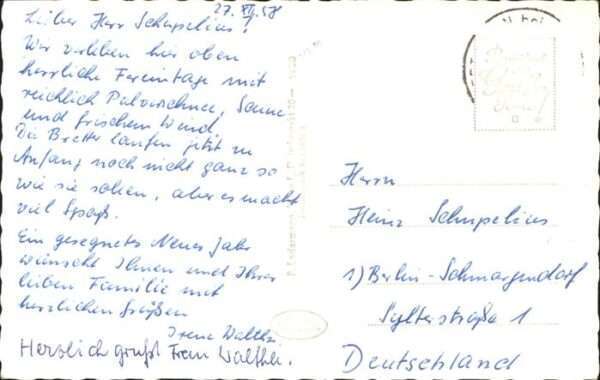 27.XII.58
Lieber Herr Schupelius!
Wir verleben hier oben
herrliche Ferientage mit
reichlich Pulverschnee, Sonne
und frischem Wind.
Die Bretter laufen jetzt zu
Anfang noch nicht ganz so
wie sie sollen, aber es macht
viel Spaß.
Ein gesegnetes Neues Jahr
wünscht Ihnen und Ihrer
lieben Familie mit
herzlichen Grüßen
Irene Walther
Herzlich grüßt Frau Walther.
Herrn
Heinz Schupelius
1) Berlin-Schmargendorf
Sylterstraße 1
Deutschland